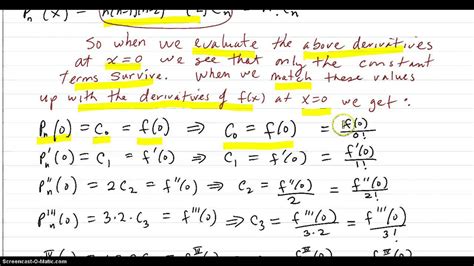 Pₙ(x) = n(n-1)(n-2) (2) Cₙ
So when we evaluate the above derivatives
at x=0 we see that only the constant
terms survive. When we match these values
up with the derivatives of f(x) at x=0 we get :
Pₙ(0) = C₀ = f(0) ⇒ C₀ = f(0) = f(0)/0!
Pₙ'(0) = C₁ = f'(0) ⇒ C₁ = f'(0) = f'(0)/1!
Pₙ''(0) = 2C₂ = f''(0) ⇒ C₂ = f''(0)/2 = f''(0)/2!
Pₙ'''(0) = 3·2·C₃ = f'''(0) ⇒ C₃ = f'''(0)/3·2 = f'''(0)/3!
Screencast-O-Matic.com